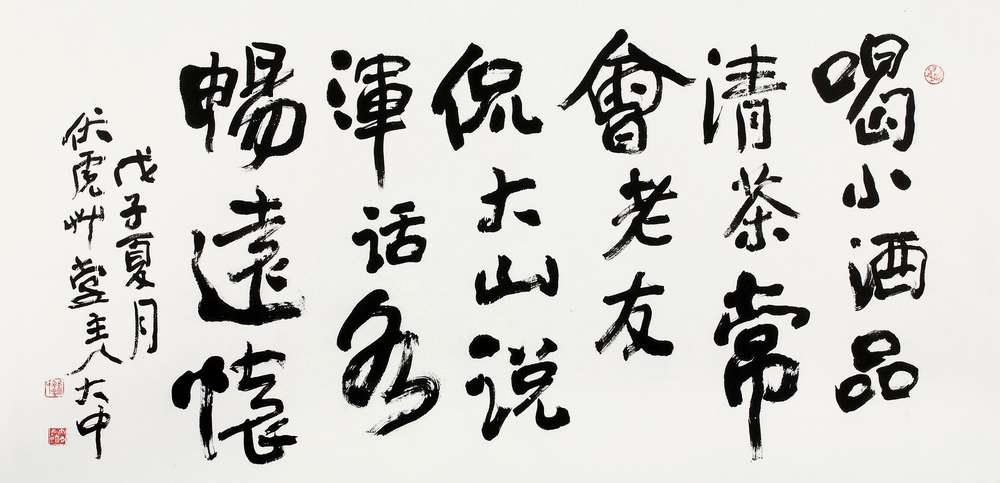 喝小酒品
清茶常
會老友
侃大山说
渾话
暢遠懷
戊子夏月
伏虎艸堂主人大中